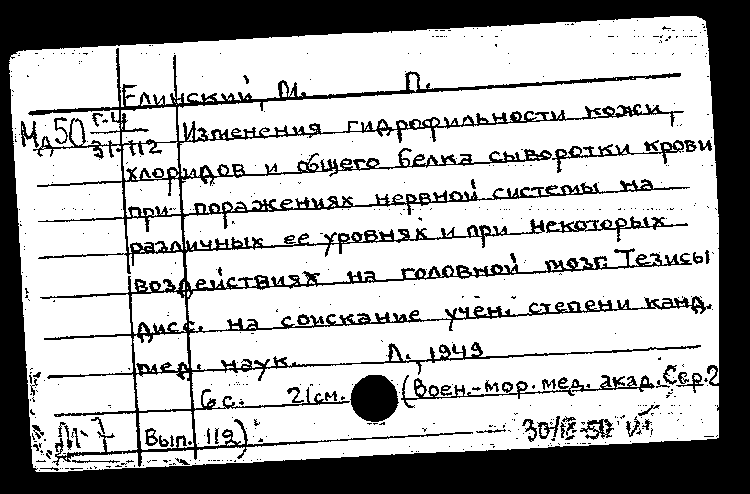 Елинский, М. П.
Мд50 Г-4
31-112
Изменения гидрофильности кожи,
хлоридов и общего белка сыворотки крови
при поражениях нервной системы на
различных ее уровнях и при некоторых
воздействиях на головной мозг. Тезисы
дисс. на соискание учен. степени канд.
мед. наук. Л., 1949
6 с. 21 см. (Воен.-мор. мед. акад. Сер. 2
Вып. 112).
М-7